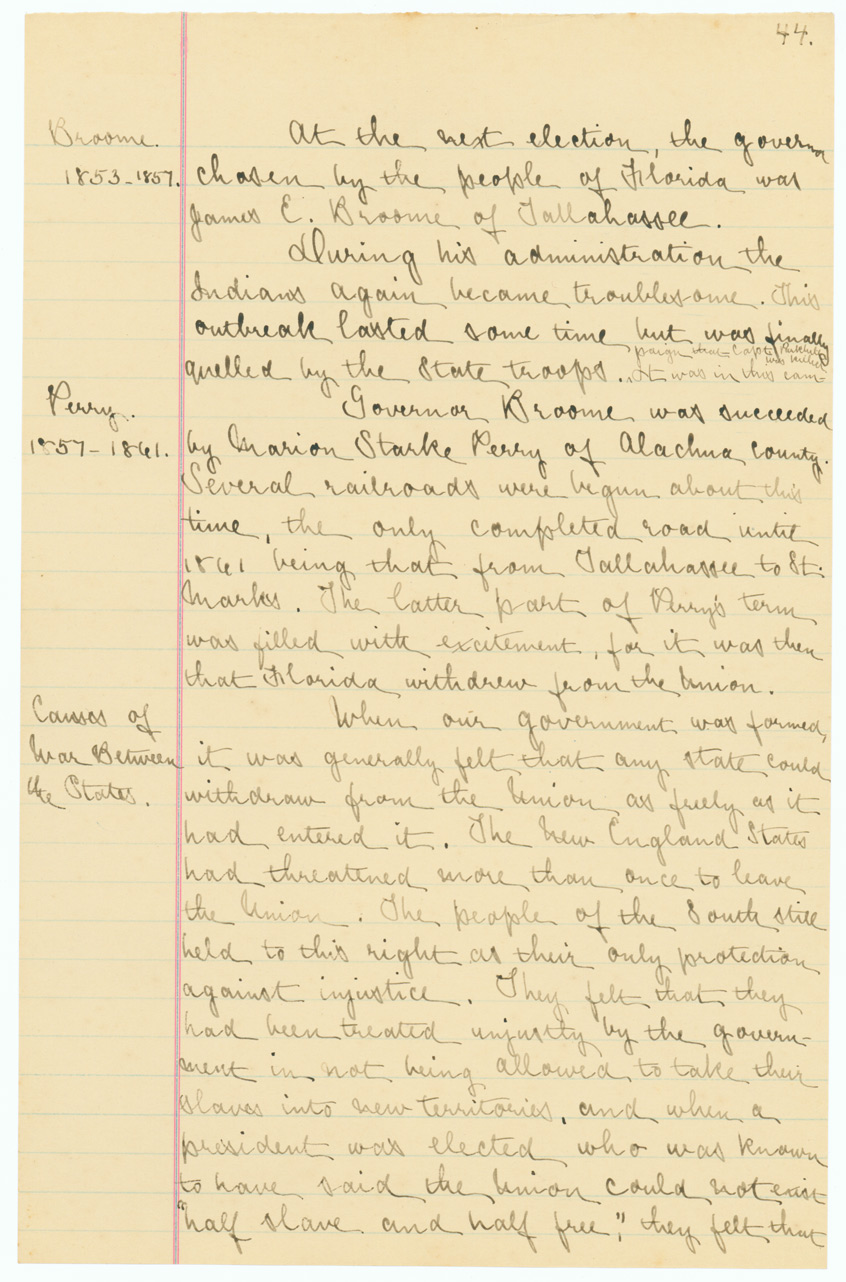 44.
Broome.
1853-1857.
At the next election, the governor
chosen by the people of Florida was
James E. Broome of Tallahassee.
During his administration the
Indians again became troublesome. This
outbreak lasted some time but was finally
quelled by the State troops. It was in this cam-
paign that Capt.
was killed
Perry.
1857-1861.
Governor Broome was succeeded
by Marion Starke Perry of Alachua county.
Several railroads were begun about this
time, the only completed road until
1861 being that from Tallahassee to St.
Marks. The latter part of Perry's term
was filled with excitement, for it was then
that Florida withdrew from the Union.
Causes of
War Between
the States.
When our government was formed,
it was generally felt that any state could
withdraw from the Union as freely as it
had entered it. The New England States
had threatened more than once to leave
the Union. The people of the South still
held to this right as their only protection
against injustice. They felt that they
had been treated unjustly by the govern-
ment in not being allowed to take their
slaves into new territories, and when a
president was elected who was known
to have said the Union could not exist
"half slave and half free", they felt that